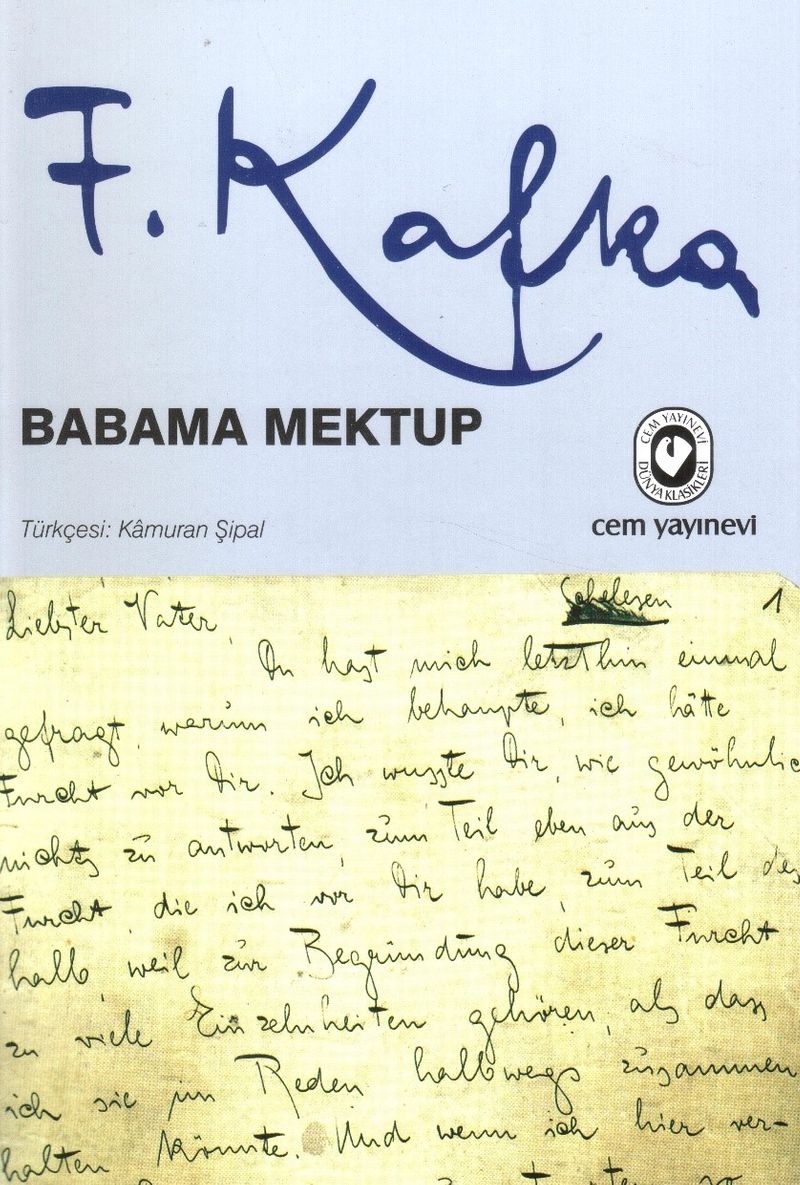 F. Kafka
BABAMA MEKTUP
CEM YAYINEVİ
DÜNYA KLASİKLERİ
Türkçesi: Kâmuran Şipal
cem yayınevi
Schelesen 1
Liebster Vater,
Du hast mich letzthin einmal
gefragt, warum ich behaupte, ich hätte
Furcht vor Dir. Ich wusste Dir, wie gewöhnlic
nichts zu antworten, zum Teil eben aus der
Furcht die ich vor Dir habe, zum Teil des
halb weil zur Begründung dieser Furcht
zu viele Einzelnheiten gehören, als dass
ich sie im Reden halbwegs zusammen
halten könnte. Und wenn ich hier ver-